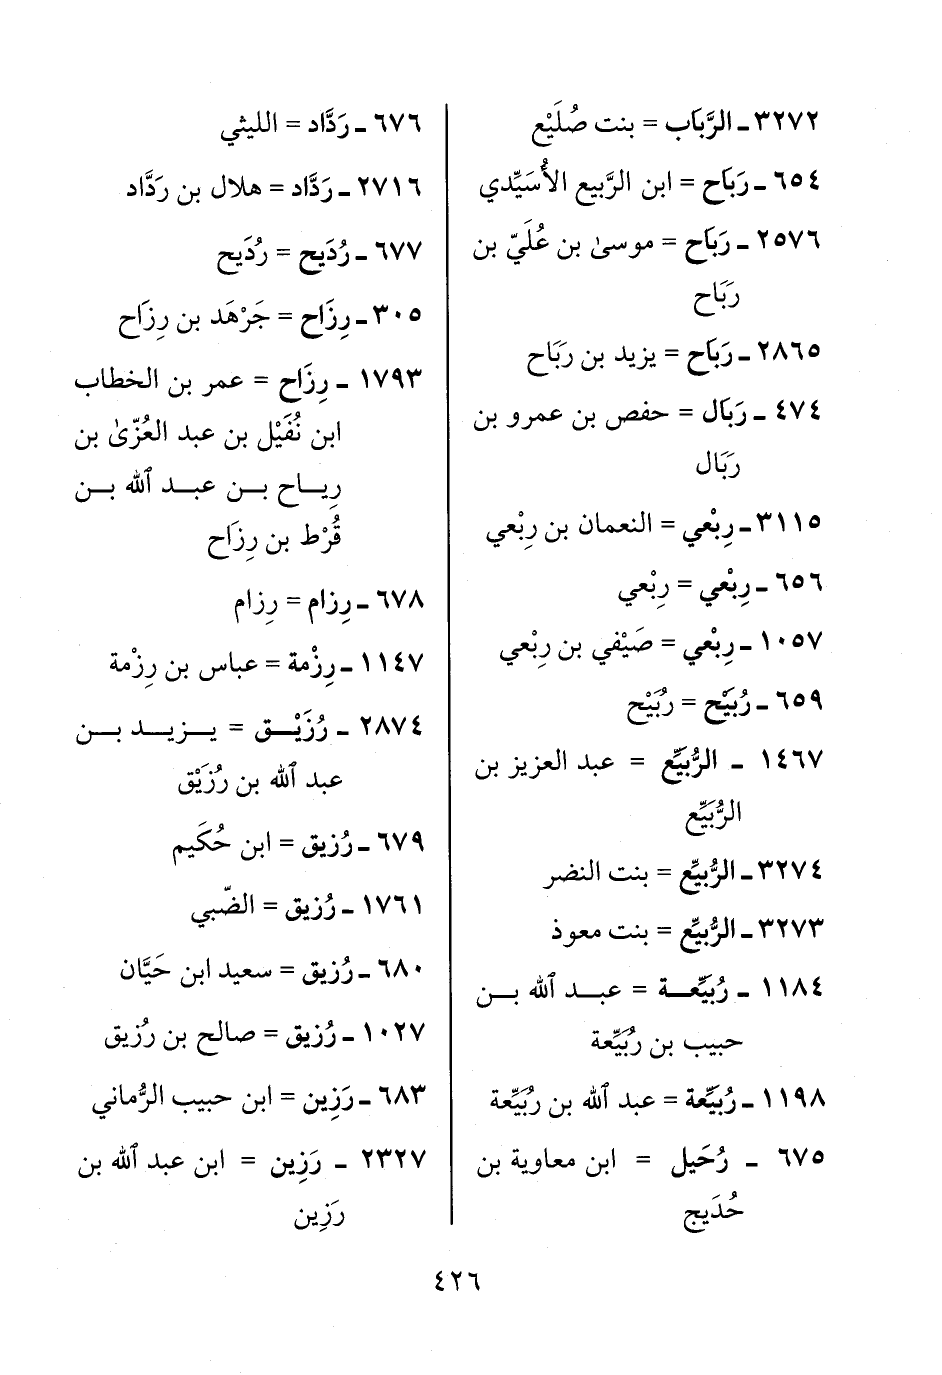 ٣٢٧٢ـ الرَّبَاب = بنت صُلَيْع
٦٥٤ ـ رَبَاح = ابن الرَّبيع الأُسَيِّدي
٢٥٧٦ ـ رَبَاح = موسىٰ بن عُلَيّ بن
رَبَاح
٢٨٦٥ ـ رَبَاح = يزيد بن رَبَاح
٤٧٤ ـ رَبَال = حفص بن عمرو بن
رَبَال
٣١١٥ـ رِبْعي = النعمان بن رِبْعي
٦٥٦ ـ رِبْعي = رِبْعي
١٠٥٧ ـ رِبْعي = صَيْفي بن رِبْعي
٦٥٩ ـ رُبَيْح = رُبَيْح
١٤٦٧ ـ الرُّبَيِّع = عبد العزيز بن
الرُّبَيِّع
٣٢٧٤ـ الرُّبيِّع = بنت النضر
٣٢٧٣ـ الرُّبيِّع = بنت معوذ
١١٨٤ ـ رُبَيِّعـة = عبـد ٱلله بـن
حبيب بن رُبَيِّعة
١١٩٨ ـ رُبَيِّعة = عبد ٱلله بن رُبَيِّعة
٦٧٥ ـ رُحَيل = ابن معاوية بن
حُدَيج
٦٧٦ ـ رَدَّاد = الليثي
٢٧١٦ ـ رَدَّاد = هلال بن رَدَّاد
٦٧٧ ـ رُدَيح = رُدَيح
٣٠٥ـ رِزَاح = جَرْهَد بن رِزَاح
١٧٩٣ ـ رِزَاح = عمر بن الخطاب
ابن نُفَيْل بن عبد العُزّىٰ بن
رِيـاح بـن عبـد ٱلله بـن
قُرْط بن رِزَاح
٦٧٨ ـ رِزام = رِزام
١١٤٧ ـ رِزْمة = عباس بن رِزْمة
٢٨٧٤ ـ رُزَيْـق = يـزيـد بـن
عبد ٱلله بن رُزَيْق
٦٧٩ ـ رُزيق = ابن حُكَيم
١٧٦١ ـ رُزيق = الضّبي
٦٨٠ ـ رُزيق = سعيد ابن حَيَّان
١٠٢٧ ـ رُزيق = صالح بن رُزيق
٦٨٣ ـ رَزِين = ابن حبيب الرُّماني
٢٣٢٧ ـ رَزِين = ابن عبد ٱلله بن
رَزِين
٤٢٦